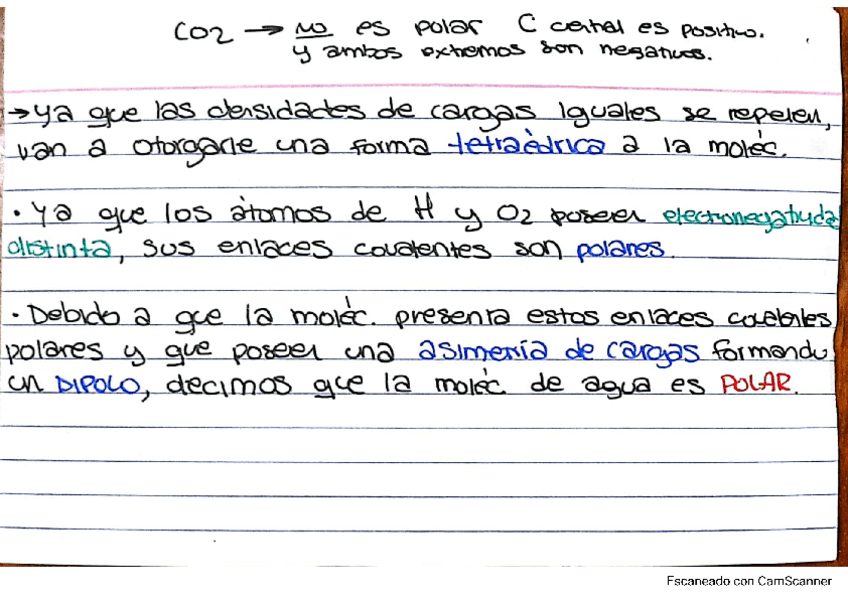 CO2 → NO es polar C central es positivo.
y ambos extremos son negativos.
→ ya que las densidades de cargas iguales se repelen,
van a otorgarle una forma tetraédrica a la moléc.
• Ya que los átomos de H y O2 poseen electronegativida
distinta, sus enlaces covalentes son polares.
• Debido a que la moléc. presenta estos enlaces covalentes
polares y que poseen una asimetría de cargas formando
un DIPOLO, decimos que la moléc de agua es POLAR.
Escaneado con CamScanner